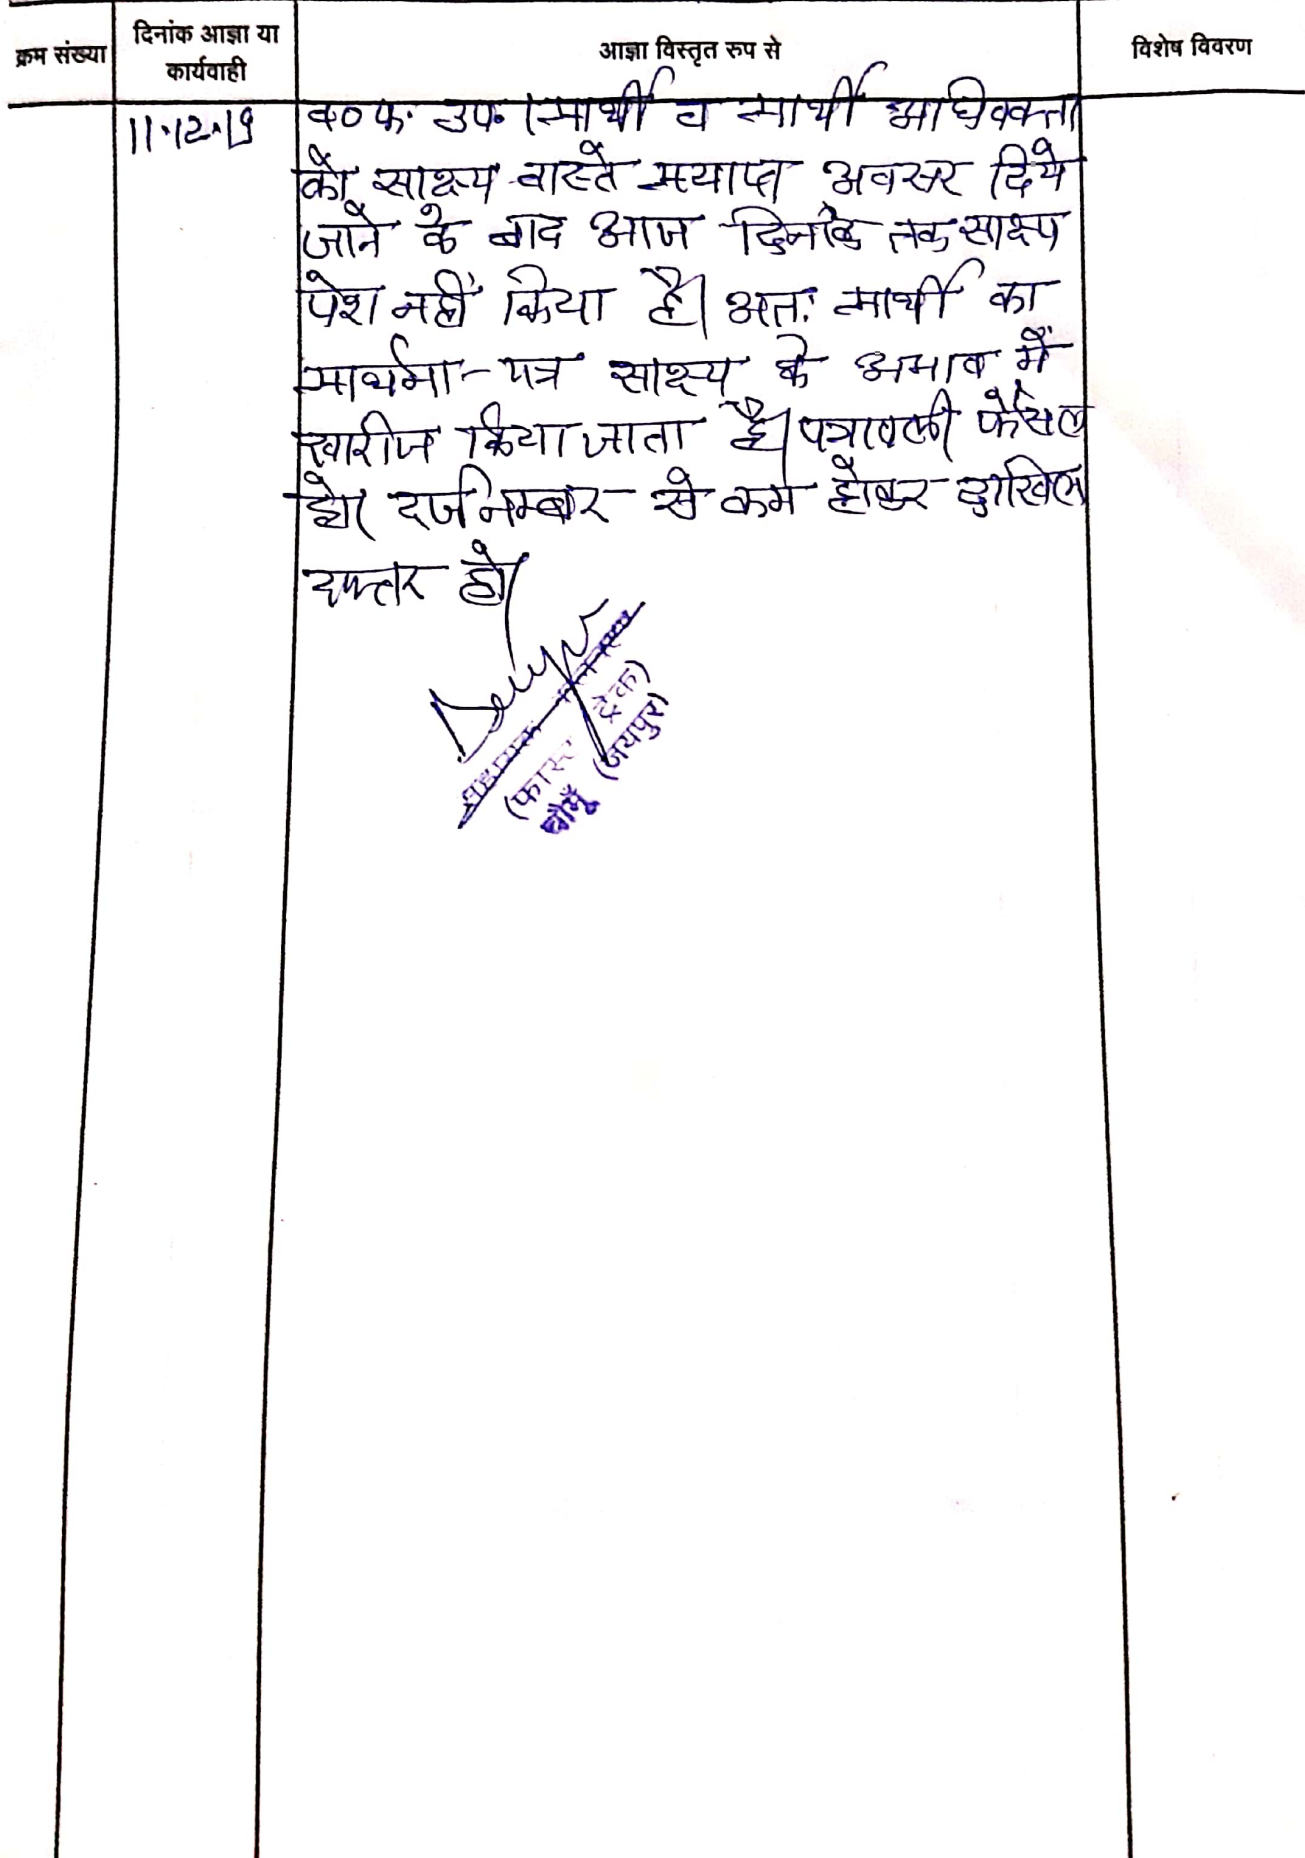 क्रम संख्या
दिनांक आज्ञा या
कार्यवाही
आज्ञा विस्तृत रुप से
विशेष विवरण
11.12.19
व० फ. उप. । प्रार्थी व प्रार्थी अधिवक्ता
को साक्ष्य वास्ते पर्याप्त अवसर दिये
जाने के बाद आज दिनांक तक साक्ष्य
पेश नहीं किया है। अतः प्रार्थी का
प्रार्थना-पत्र साक्ष्य के अभाव में
खारीज किया जाता है। पत्रावली फैसल
हो। दर्ज नम्बर से कम होकर दाखिल
दफ्तर हो।
(फास्ट ट्रेक)
चौमूँ (जयपुर)